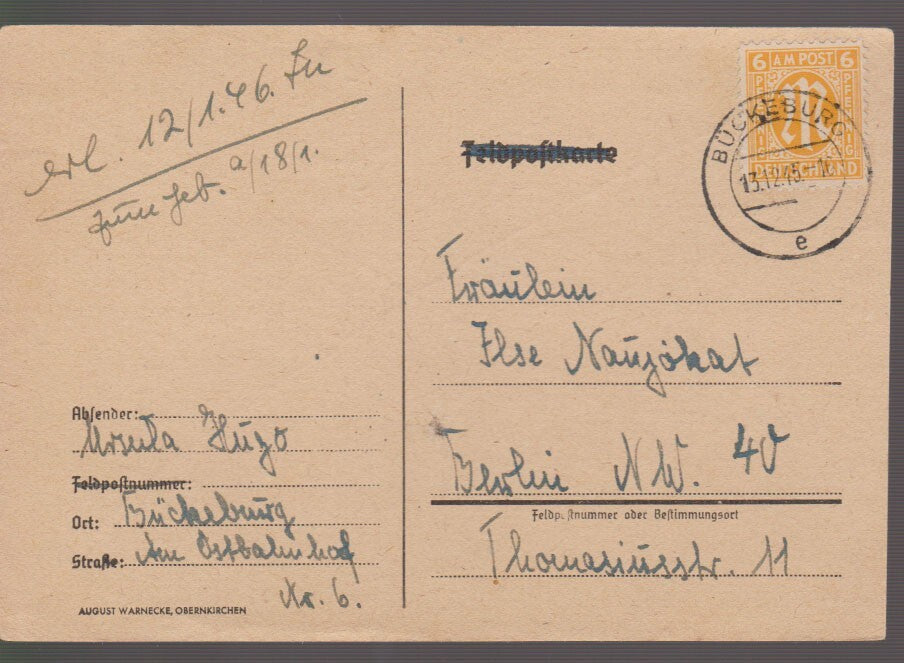 erl. 12/1.46.
zum Geb. a/18/1.
6 AM POST 6
PFENNIG
PFENNIG
DEUTSCHLAND
BÜCKEBURG
13.12.45.
e
Feldpostkarte
Fräulein
Ilse Naujokat
Berlin NW. 40
Feldpostnummer oder Bestimmungsort
Thomasiusstr. 11
Absender:
Ursula Hugo
Feldpostnummer:
Ort: Bückeburg
Straße: Am Ostbahnhof
Nr. 6.
AUGUST WARNECKE, OBERNKIRCHEN